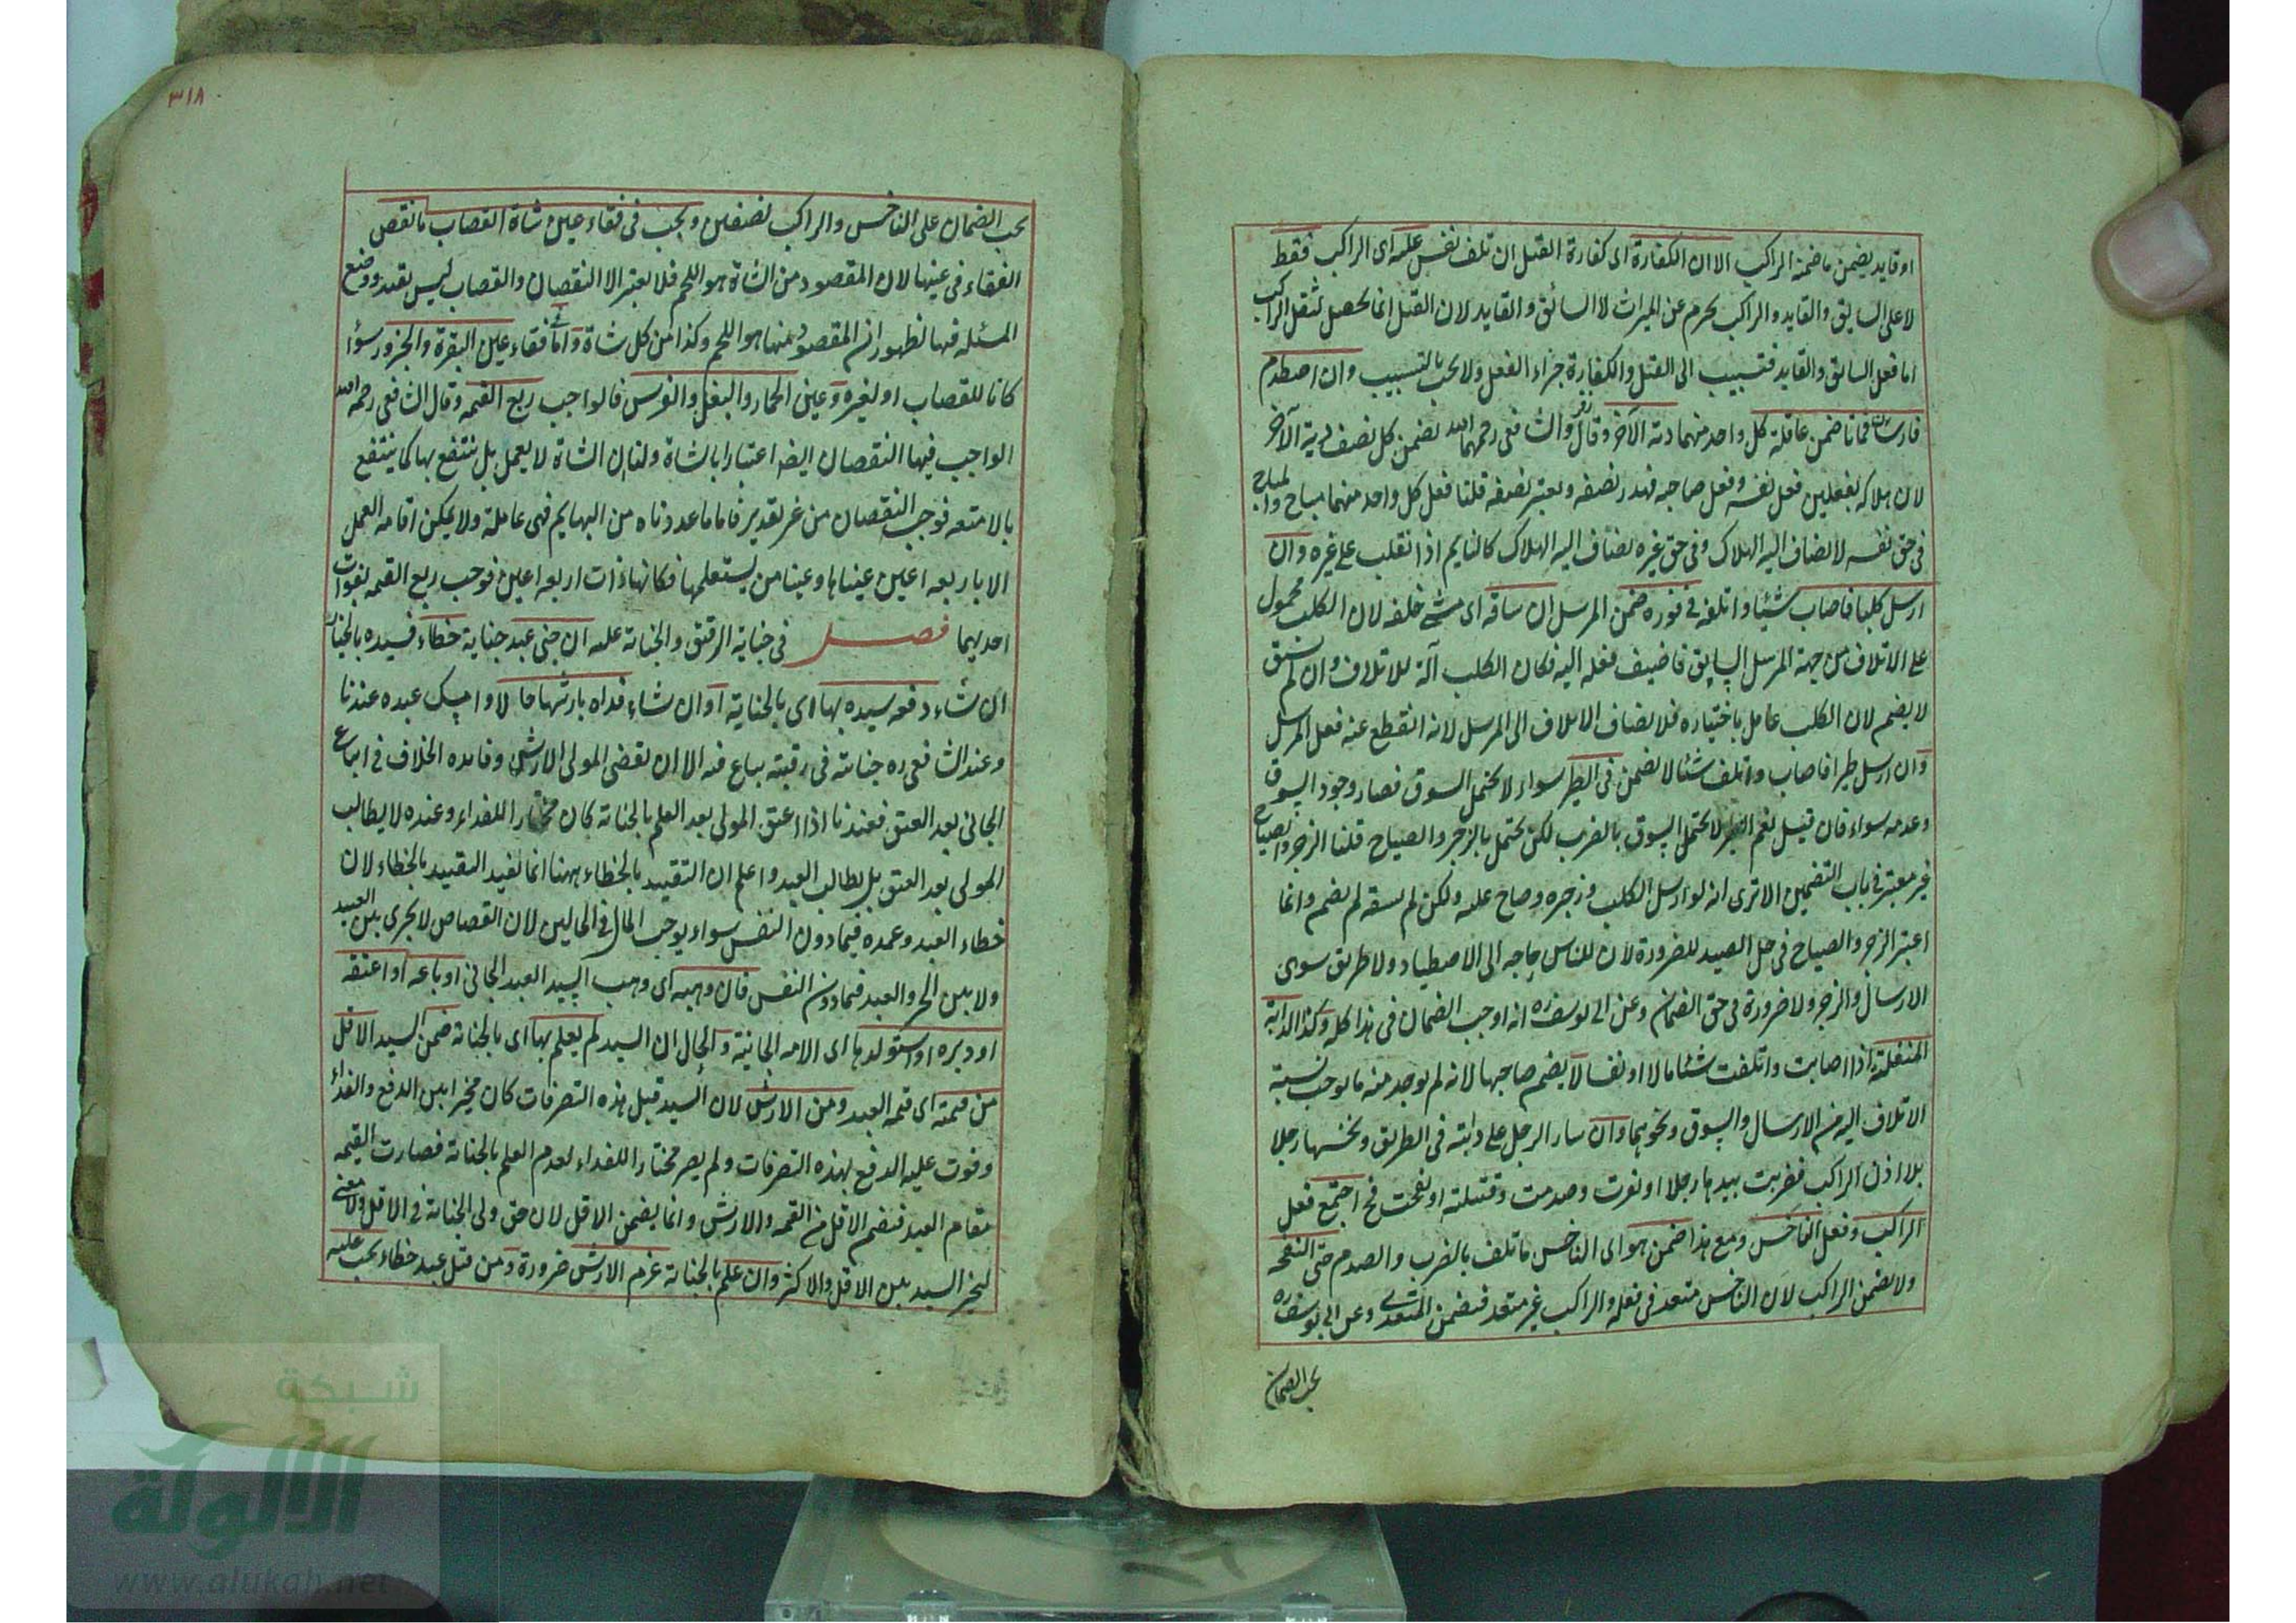 او قايد يضمن ما ضمنه الراكب الا ان الكفارة اى كفارة القتل ان تلف نفس عليه اى الراكب فقط
لا على السايق والقايد والراكب يحرم عن الميراث لا السائق والقايد لان القتل انما يحصل بثقل الراكب
اما فعل السائق والقايد فتسبيب الى القتل والكفارة جزاء الفعل ولا يجب بالتسبيب وان اصطدم
فارسان فماتا ضمن عاقلة كل واحد منهما دية الآخر وقال زفر والشافعى رحمهما الله يضمن كل نصف دية الآخر
لان هلاكه بفعلين فعل نفسه وفعل صاحبه فهدر نصفه ويعتبر نصفه قلنا فعل كل واحد منهما مباح والمباح
فى حق نفسه لا يضاف اليه الهلاك وفى حق غيره يضاف اليه الهلاك كالنايم اذا انقلب على غيره وان
ارسل كلبا فاصاب شيئا واتلفه فى فوره ضمن المرسل ان ساقه اى مشى خلفه لان الكلب محمول
على الاتلاف من جهة المرسل السايق فاضيف فعله اليه فكان الكلب آلة للاتلاف وان لم يسق
لا يضمن لان الكلب عامل باختياره فلا يضاف الاتلاف الى المرسل لانه انقطع عنه فعل المرسل
وان ارسل طيرا فاصاب واتلف شيئا لا يضمن فى الطير سواء لا يحتمل السوق فصار وجود السوق
وعدمه سواء فان قيل نعم الطير لا يحتمل السوق بالضرب لكن يحتمل بالزجر والصياح قلنا الزجر والصياح
غير معتبر فى باب التضمين الا ترى انه لو ارسل الكلب وزجره وصاح عليه ولكن لم يسقه لم يضمن وانما
اعتبر الزجر والصياح فى حل الصيد للضرورة لان للناس حاجه الى الاصطياد ولا طريق سوى
الارسال والزجر ولا ضرورة فى حق الضمان وعن ابى يوسف ره انه اوجب الضمان فى هذا كله وكذا الدابة
المنفلتة اذا اصابت واتلفت شيئا مالا او نفسا لا يضمن صاحبها لانه لم يوجد منه ما يوجب نسبة
الاتلاف اليه من الارسال والسوق ونحوهما وان سار الرجل على دابته فى الطريق ونخسها رجلا
بلا اذن الراكب فضربت بيدها رجلا او نفرت وصدمت وقتلته او نفحت فح اجتمع فعل
الراكب وفعل الناخس ومع هذا ضمن هو اى الناخس ما تلف بالضرب والصدم حتى النفحه
ولا يضمن الراكب لان الناخس متعد فى فعله والراكب غير متعد فيضمن المتعدى وعن ابى يوسف ره
يجب الضمان
٣١٨
يجب الضمان على الناخس والراكب نصفين ويجب فى فقاء عين شاة القصاب ما نقص
الفقاء فى عينها لان المقصود من الشاة هو اللحم فلا يعتبر الا النقصان والقصاب ليس بقيد ووضع
المسئله فيها لظهور ان المقصود منها هو اللحم وكذا من كل شاة واما فى فقاء عين البقرة والجزور سواء
كانا للقصاب او لغيره وعين الحمار والبغل والفرس فالواجب ربع القيمه وقال الشافعى رحمه الله
الواجب فيها النقصان ايضا اعتبارا بالشاة ولنا ان الشاة لا يعمل بل ينتفع بها كما ينتفع
بالامتعه فوجب النقصان من غير تقدير فاما ما عددناه من البهايم فهى عاملة ولا يمكن اقامه العمل
الا باربعه اعين عيناها وعينا من يستعملها فكانها ذات اربعه اعين فوجب ربع القيمه بفوات
احديهما فصل فى جناية الرقيق والجناية عليه ان جنى عبد جناية خطاء فسيده بالخيار
ان شاء دفعه سيده بها اى بالجناية او ان شاء فداه بارشها حالا وا يملك عبده عندنا
وعند الشافعى ره جنايته فى رقبته يباع فيه الا ان يقضى المولى الارش وفايده الخلاف فى اتباع
الجانى بعد العتق فعندنا اذا اعتق المولى بعد العلم بالجناية كان مختارا للفداء وعنده لا يطالب
المولى بعد العتق بل يطالب العبد واعلم ان التقييد بالخطاء ههنا انما يفيد التقييد بالخطاء لان
خطاء العبد وعمده فيما دون النفس سواء يوجب المال فى الحالين لان القصاص لا يجرى بين العبيد
ولا بين الحر والعبد فيما دون النفس فان وهبه اى وهب السيد العبد الجانى او باعه او اعتقه
او دبره او استولدها اى الامه الجانية والحال ان السيد لم يعلم بها اى بالجناية ضمن السيد الاقل
من قيمته اى قيمه العبد ومن الارش لان السيد قبل هذه التصرفات كان مخيرا بين الدفع والفداء
وفوت عليه الدفع بهذه التصرفات ولم يصر مختارا للفداء لعدم العلم بالجناية فصارت القيمه
مقام العبد فيضمن الاقل من القيمه والارش وانما يضمن الاقل لان حق ولى الجناية فى الاقل ولا معنى
لتخير السيد بين الاقل والاكثر وان علم بالجناية غرم الارش ضرورة ومن قتل عبد خطاء يجب عليه
شبكة
الألوكة
www.alukah.net